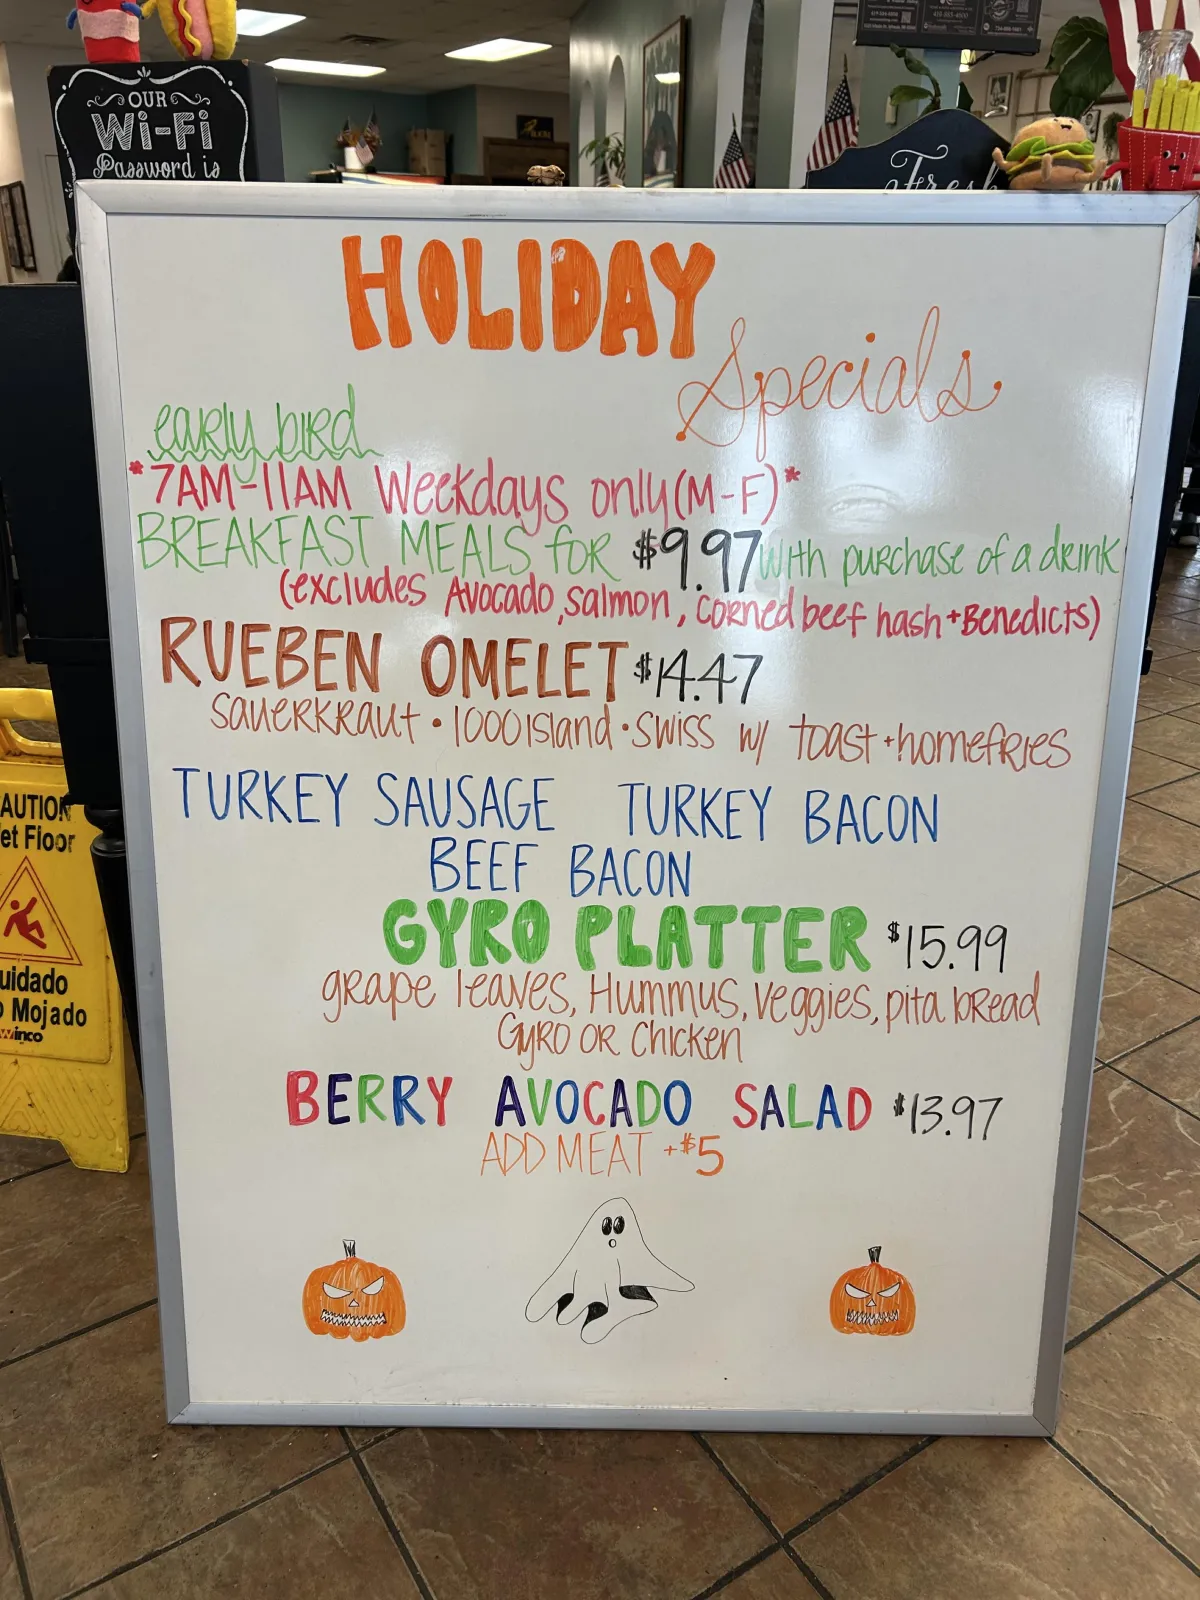 OUR
Wi-Fi
Password is
Fresh
HOLIDAY
Specials
early bird
*7AM-11AM Weekdays only (M-F)*
BREAKFAST MEALS for $9.97 with purchase of a drink
(excludes Avocado, salmon, corned beef hash + Benedicts)
RUEBEN OMELET $14.47
sauerkraut • 1000 island • swiss w/ toast + homefries
TURKEY SAUSAGE TURKEY BACON
BEEF BACON
GYRO PLATTER $15.99
grape leaves, Hummus, veggies, pita bread
Gyro OR Chicken
BERRY AVOCADO SALAD $13.97
ADD MEAT +$5
AUTION
et Floor
uidado
o Mojado
winco